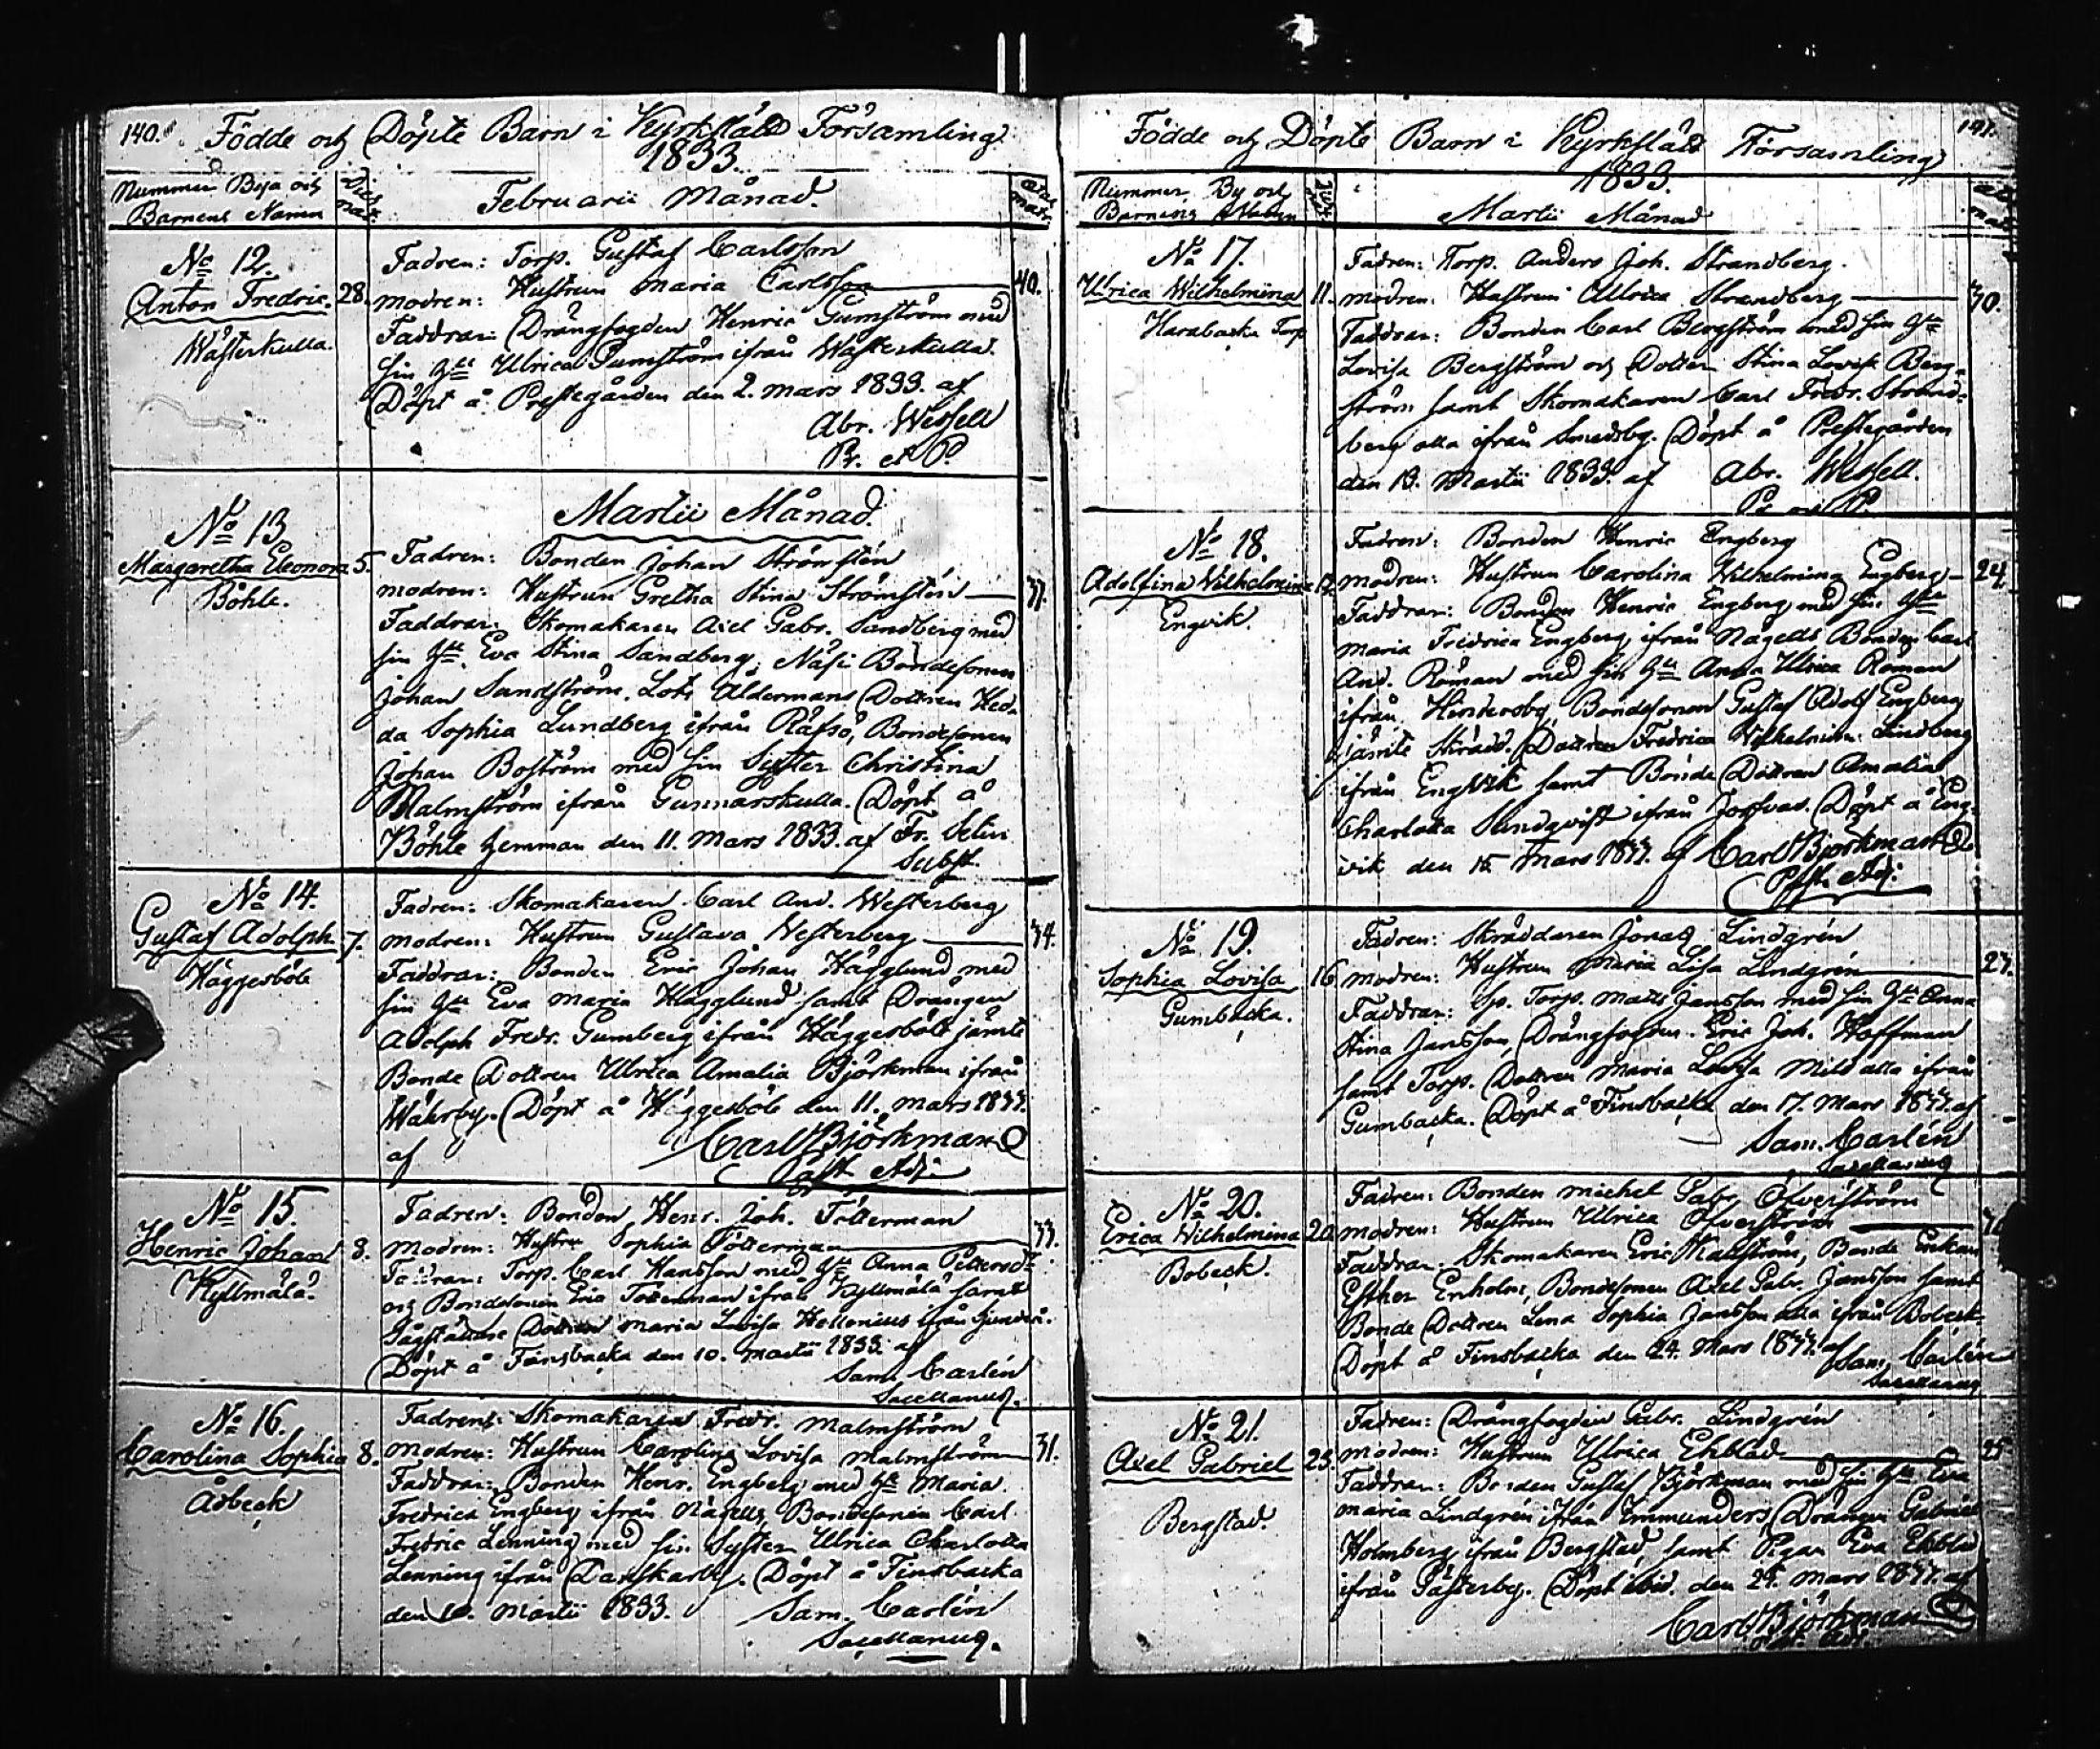 140. Födde och Döpte Barn i Kyrkslätt Församling
1833.
Nummer Bya och
Barnens Namn
Februarii Månad.
No 12.
Anton Fredric. 28.
Wästerkulla.
Fadren: Torp. Gustaf Carlsson
modren: Hustrun Maria Carlsson 40.
Faddrar: Drängfogden Henric Gumström med
sin hu Ulrica Gumström ifrån Wästerkulla.
Döpt å Prestegården den 2. mars 1833. af
Abr. Wessell
Pr. et P.
Martii Månad.
No 13
Margaretha Eleonora 5.
Böhle.
Fadren: Bonden Johan Strömstén
modren: Hustrun Gretha Stina Strömstén 37.
Faddrar: Skomakaren Axel Gabr. Sandberg med
sin hu Eva Stina Sandberg, Näsi Bondesonen
Johan Sandström, Lots Åldermans Dottren Hed-
da Sophia Lundberg ifrån Räfsö, Bondesonen
Johan Boström med sin Syster Christina
Malmström ifrån Gunnarskulla. Döpt å
Böhle hemman den 11. Mars 1833. af Fr. Selin
Subst.
No 14.
Gustaf Adolph 7.
Häggesböle
Fadren: Skomakaren Carl And. Westerberg
modren: Hustrun Gustava Westerberg 34.
Faddrar: Bonden Eric Johan Hägglund med
sin hu Eva Maria Hägglund samt Drängen
Adolph Fredr. Gumberg ifrån Häggesböle jämte
Bonde Dottren Ulrica Amalia Björkman ifrån
Wåhrby. Döpt å Häggesböle den 11. mars 1833.
af Carl Björkman
Past. Adj.
No 15.
Henric Johan 8.
Kyllmälä.
Fadren: Bonden Henr. Joh. Tötterman
modren: Hustru Sophia Tötterman 33.
Faddrar: Torp. Carl Hansson med hu Anna Pettersdr
och Bondesonen Eric Tötterman ifrån Kyllmälä samt
Dottren Maria Lovisa Hollenius ifrån
Döpt å Finsbacka den 10. martii 1833. af
Sam. Carlén
Sacellanus.
No 16.
Carolina Sophia 8.
Åsbeck
Fadren: Skomakaren Fredr. Malmström
modren: Hustrun Carolina Lovisa Malmström 31.
Faddrar: Bonden Henr. Engberg med hu Maria
Fredrica Engberg ifrån Nägels, Bondesonen Carl
Fredric Lenning med sin Syster Ulrica Charlotta
Lenning ifrån Danskarby. Döpt å Finsbacka
den 10. Martii 1833.
Sam. Carlén
Sacellanus.
141.
Födde och Döpte Barn i Kyrkslätt Församling
1833.
Nummer, By och
Barnens Namn
Martii Månad
No 17.
Ulrica Wilhelmina 11.
Harabacka Torp
Fadren: Torp. Anders Joh. Strandberg.
modren: Hustrun Ullrica Strandberg 30.
Faddrar: Bonden Carl Bergström med sin hu
Lovisa Bergström och Dotter Stina Lovisa Berg-
ström samt Skomakaren Carl Fredr. Strand-
berg alla ifrån Smedsby. Döpt å Prestegården
den 13. Martii 1833. af Abr. Wessell.
Pr. et P.
No 18.
Adolfina Wilhelmina
Engvik.
Fadren: Bonden Henric Engberg
modren: Hustrun Carolina Wilhelmina Engberg 24.
Faddrar: Bonden Henric Engberg med sin hu
Maria Fredrica Engberg ifrån Nägels Bonden Carl
And. Roman med sin hu Anna Ulrica Roman
ifrån Hindersby, Bondesonen Gustaf Adolf Engberg
jämte Skrädd. Dottren Fredrica Wilhelmina Lindberg
ifrån Engvik samt Bonde Dottren Amalia
Charlotta Sundqvist ifrån Jorfvas. Döpt å Eng-
vik den 15. mars 1833. af Carl Björkman
Past. Adj.
No 19.
Sophia Lovisa 16
Gumbacka.
Fadren: Skräddaren Jonas Lindgrén
modren: Hustrun Maria Lisa Lindgrén 27.
Faddrar: Sp. Torp. Matts Jansson med sin hu Anna
Stina Jansson, Drängfogden Eric Joh. Hoffman
samt Torp. Dottren Maria Lovisa Mild alla ifrån
Gumbacka. Döpt å Finsbacka den 17. Mars 1833. af
Sam. Carlén
Sacellanus
No 20.
Erica Wilhelmina 20.
Bobeck.
Fadren: Bonden Michel Gabr. Öfverström
modren: Hustrun Ulrica Öfverström
Faddrar: Skomakaren Eric Mattström, Bonde Enkan
Esther Enholm, Bondesonen Axel Gabr. Jansson samt
Bonde Dottren Lena Sophia Jansson alla ifrån Bobeck.
Döpt å Finsbacka den 24. Mars 1833. af
Sam. Carlén
Sacellanus
No 21.
Axel Gabriel 23.
Bergstad.
Fadren: Drängfogden Gabr. Lindgrén
modren: Hustrun Ulrica Ekblad 25
Faddrar: Bonden Gustaf Björkman med sin hu Eva
Maria Lindgrén ifrån Immunders, Drängen Gabriel
Holmberg ifrån Bergstad samt Pigan Eva Ekblad
ifrån Gästerby. Döpt ibid. den 25. Mars 1833. af
Carl Björkman